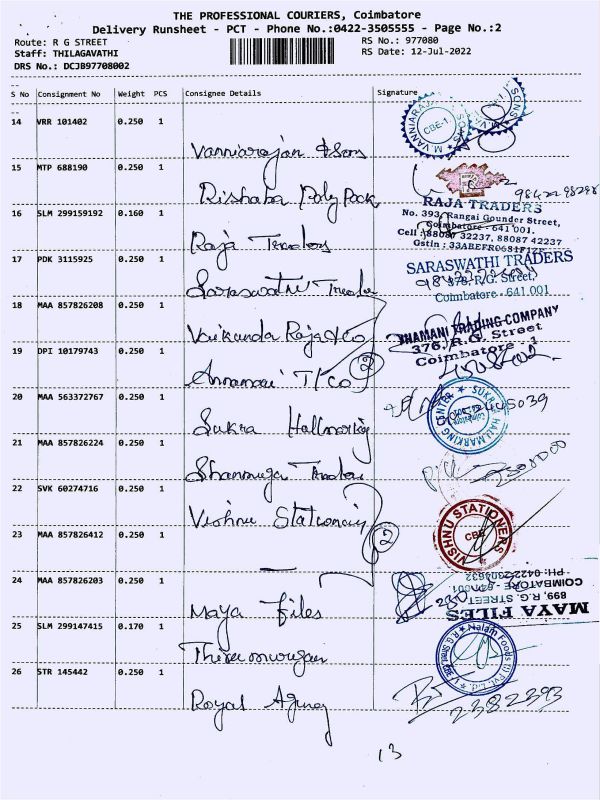 THE PROFESSIONAL COURIERS, Coimbatore
Delivery Runsheet - PCT - Phone No.:0422-3505555 - Page No.:2
Route: R G STREET
RS No.: 977080
Staff: THILAGAVATHI
RS Date: 12-Jul-2022
DRS No.: DCJB97708002
S No Consignment No Weight PCS Consignee Details Signature
14 VRR 101402 0.250 1 Vanniarajan & Sons
M. VANNIARAJAN SONS CBE-1
15 MTP 688190 0.250 1 Rishaba Poly Pack
RAJA TRADERS
No. 393, Rangai Gounder Street,
Coimbatore - 641 001.
Cell : 88087 32237, 88087 42237
16 SLM 299159192 0.160 1 Raja Traders
17 PDK 3115925 0.250 1 Saraswathi Trader
SARASWATHI TRADERS
378, R.G. Street,
Coimbatore - 641 001
18 MAA 857826208 0.250 1 Vaikunda Raja & Co
19 DPI 10179743 0.250 1 Annamari T/Co 2
NAMANI TRADING COMPANY
376, R.G. Street
Coimbatore - 1
20 MAA 563372767 0.250 1 Sukra Hallmarking
SUKRA HALLMARKING CENTER
21 MAA 857826224 0.250 1 Shanmuga Traders
22 SVK 60274716 0.250 1 Vishnu Stationery
VISHNU STATIONERS CBE
23 MAA 857826412 0.250 1 2
24 MAA 857826203 0.250 1 Maya Files
MAYA FILES
899, R.G. STREET
COIMBATORE
25 SLM 299147415 0.170 1 Thirumurugan
Nalam Foods (I) Pvt. Ltd.
26 STR 145442 0.250 1 Royal Agency
2382393
13